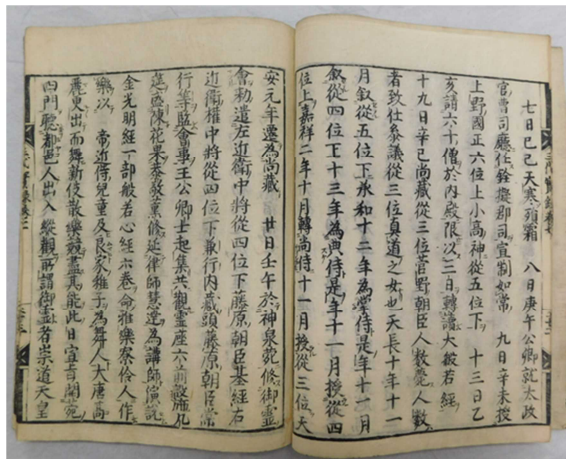 七日己巳天寒殞霜 八日庚午公卿就太政
官曹司廳任銓擬郡司宣制如常 九日辛未授
上野國正六位上小高神從五位下 十三日乙
亥請六十僧於內殿限次三日轉讀大般若經
十九日辛巳尚藏從三位菅野朝臣人數薨人數
者致仕參議從三位真道之女也天長十年十一
月叙從五位下承和十二年為掌侍是年十一月
叙從四位下十三年為典侍是年十一月授從四
位上嘉祥二年十月轉尚侍十一月授從三位天
安元年遷為尚藏 廿日壬午於神泉苑修御靈
會勅遣左近衛中將從四位下藤原朝臣基經右
近衛權中將從四位下兼行內藏頭藤原朝臣常
行等監會事王公卿士起集共觀靈座六前設施几
筵盛陳花果恭敬薰修延律師慧達為講師演說
金光明經一部般若心經六卷命雅樂寮伶人作
樂以 帝近侍兒童及良家稚子為舞人大唐高
麗更出而舞雜伎散樂競盡其能此日宣旨開苑
四門聽都邑人出入縱觀所謂御靈者崇道天皇